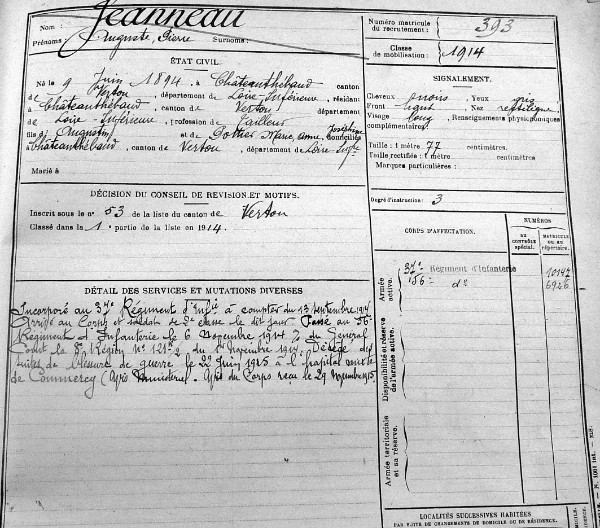 Nom : Jeanneau
Prénoms : Auguste, Pierre Surnoms :
Numéro matricule du recrutement : 393
Classe de mobilisation : 1914
ÉTAT CIVIL.
Né le 9 Juin 1894, à Châteauthébaud canton
de Vertou, département de Loire-Inférieure, résidant
à Châteauthébaud, canton de Vertou département
de Loire-Inférieure, profession de Tailleur
fils d'Augustin et de Marie, Anne, Joséphine domiciliés
à Châteauthébaud canton de Vertou, département de Loire-Infre
Marié à
SIGNALEMENT.
Cheveux Yeux gris
Front haut Nez rectiligne
Visage long Renseignements physionomiques
complémentaires
Taille : 1 mètre 77 centimètres.
Taille rectifiée : 1 mètre centimètres.
Marques particulières :
Degré d'instruction : 3
DÉCISION DU CONSEIL DE REVISION ET MOTIFS.
Inscrit sous le n° 53 de la liste du canton de Vertou
Classé dans la 1e partie de la liste en 1914.
CORPS D'AFFECTATION.
NUMÉROS
AU CONTRÔLE SPÉCIAL.
MATRICULE OU AU RÉPERTOIRE.
Armée active.
37e Régiment d'Infanterie 10147
156e do 6946
Disponibilité et réserve de l'armée active.
Armée territoriale et sa réserve.
DÉTAIL DES SERVICES ET MUTATIONS DIVERSES
Incorporé au 37e Régiment d'Infie à compter du 13 septembre 1914
Arrivé au Corps et soldat de 2e classe le dit jour. Passé au 156e
Régiment d'Infanterie le 6 Novembre 1914 du Général
Comt la 8e Région No du 1er Novembre 1914. Décédé des
suites de blessure de guerre le 2 Juin 1915 à l'hopital mixte
de Commercy (Avis Ministériel). Avis du Corps reçu le 29 Novembre 1915.
LOCALITÉS SUCCESSIVES HABITÉES
PAR SUITE DE CHANGEMENTS DE DOMICILE OU DE RÉSIDENCE.